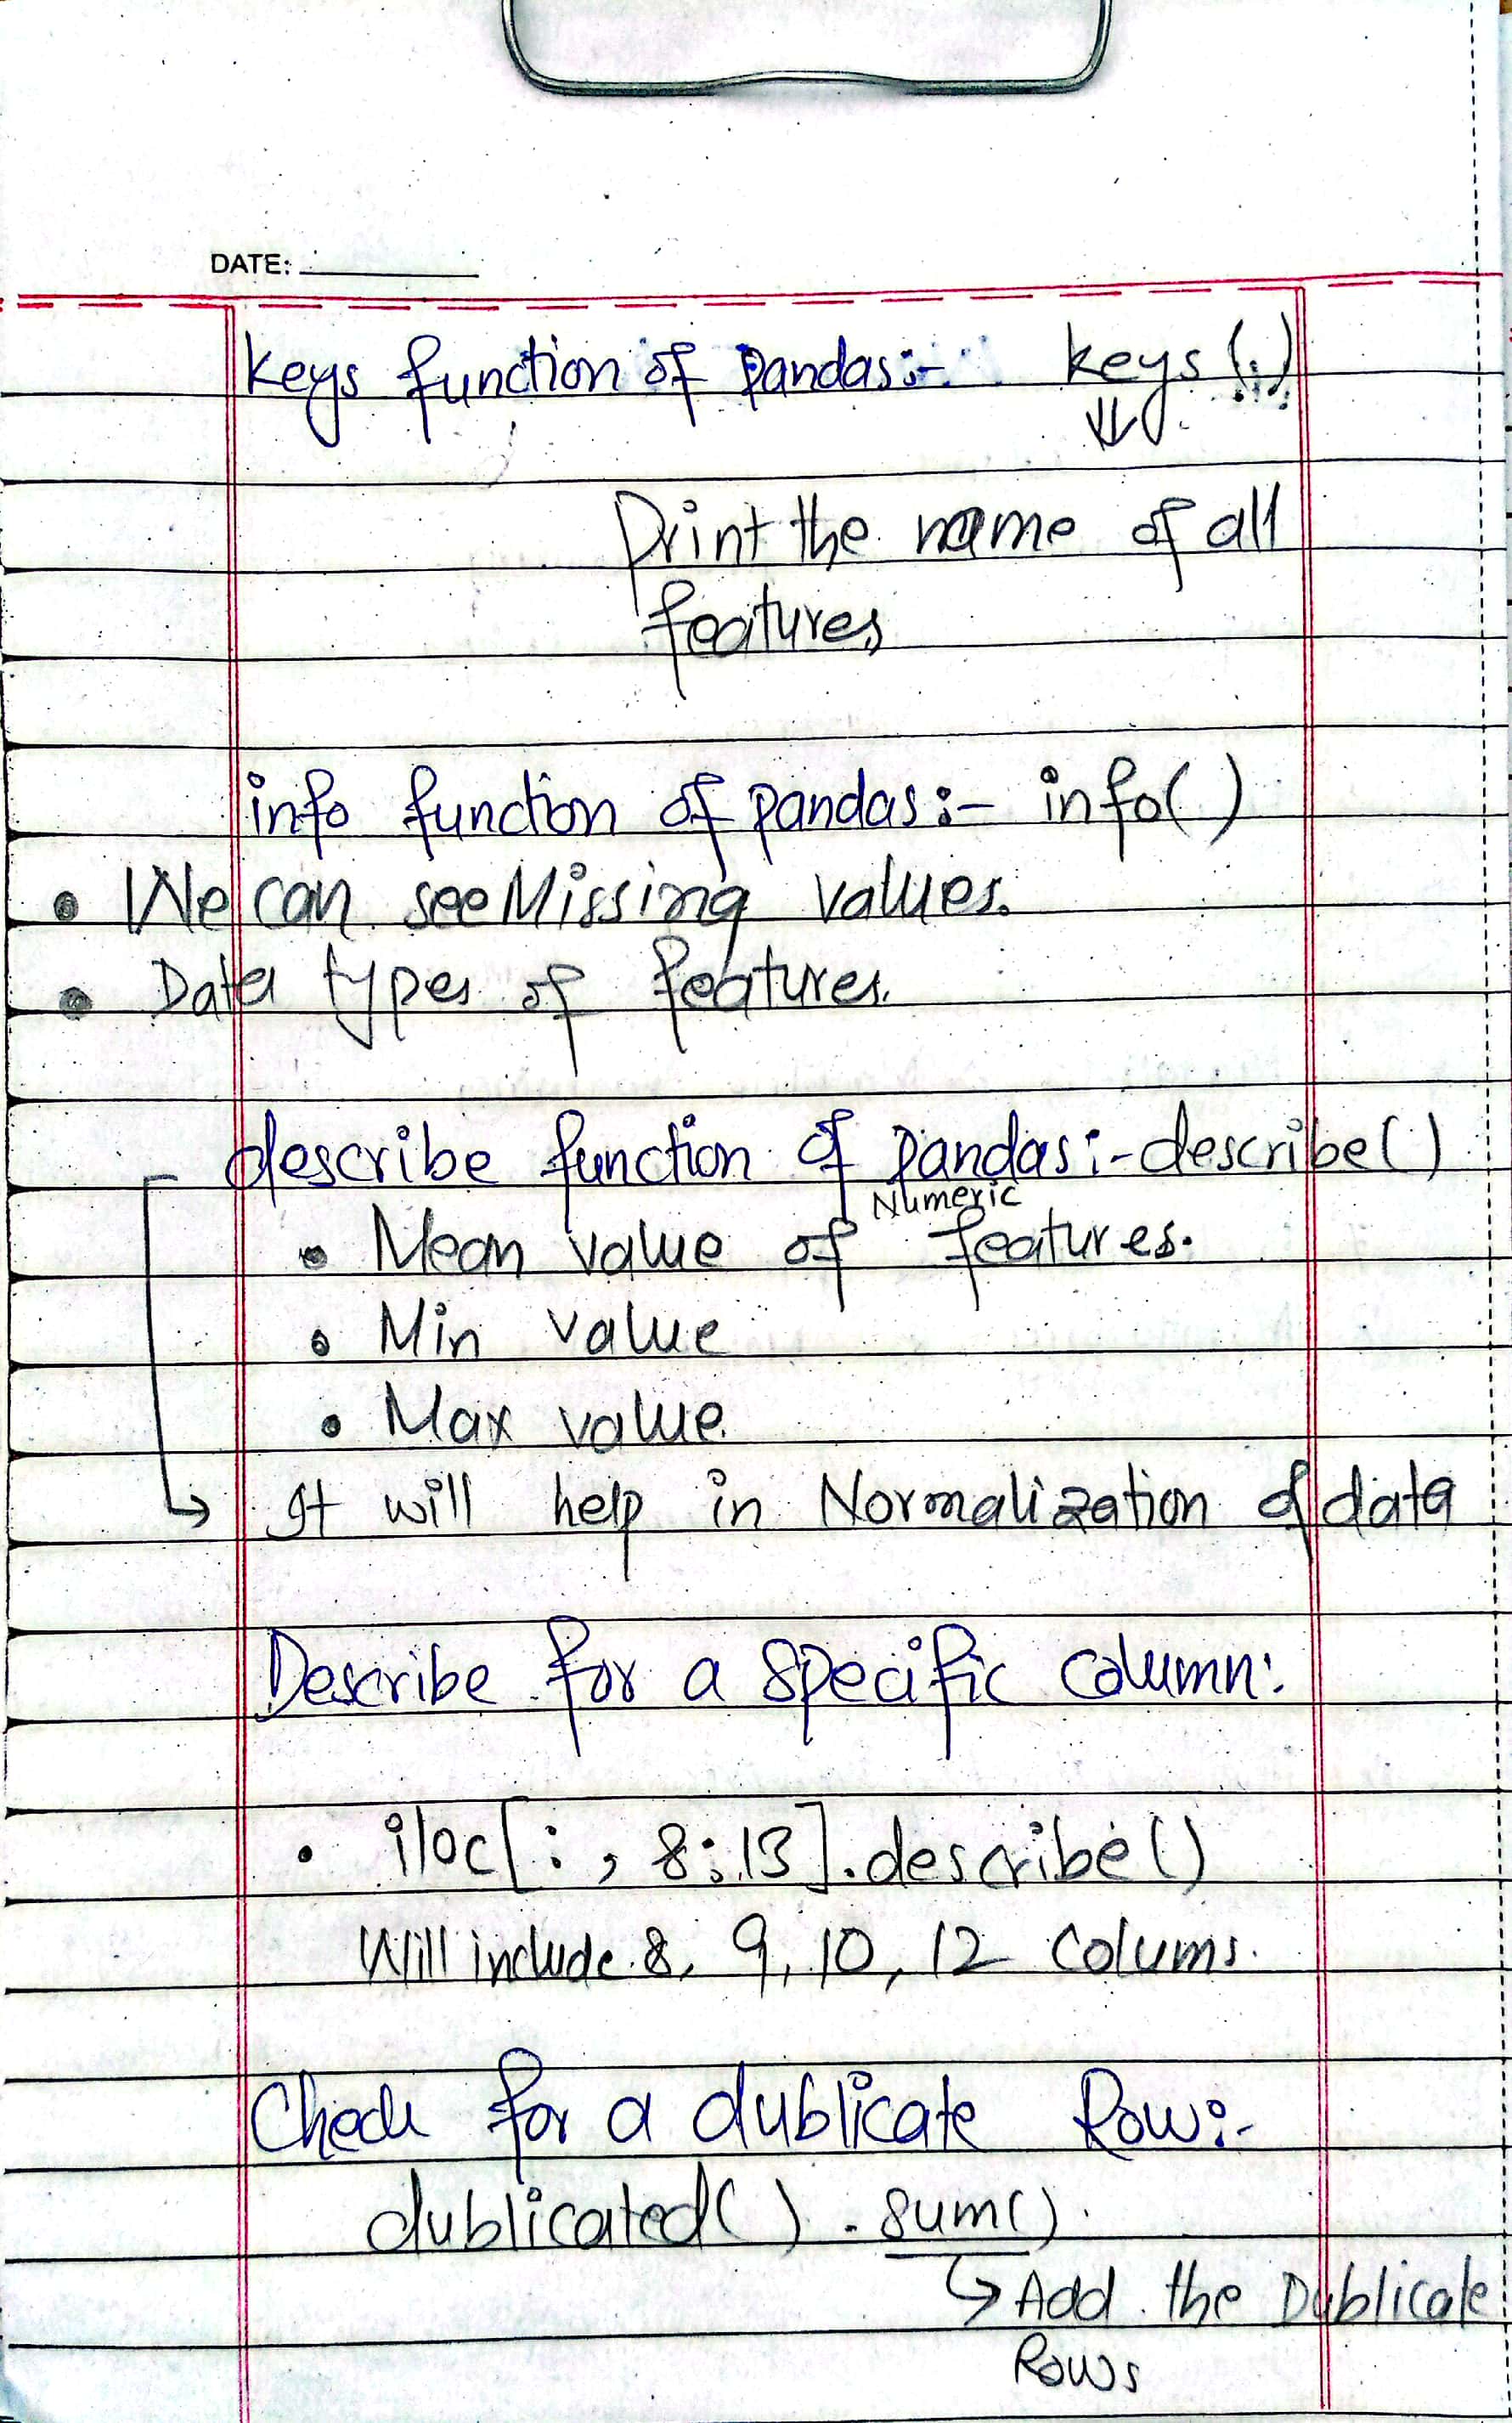 DATE:
keys function of pandas:- keys(.)
Print the name of all
features
info function of pandas:- info( )
• We can see Missing values.
• Data types of features.
describe function of pandas:- describe()
Numeric
• Mean value of features.
• Min value
• Max value
It will help in Normalization of data
Describe for a specific column:
• iloc[: , 8:13].describe()
Will include 8, 9, 10, 12 colums.
Check for a dublicate Row:-
dublicated( ) . sum().
↳ Add the Dublicate
Rows